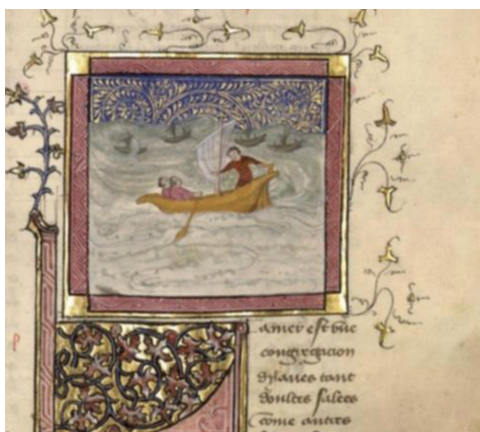 Lamer est vne
congregacion
dyaues tant
doulces salees
Come autres